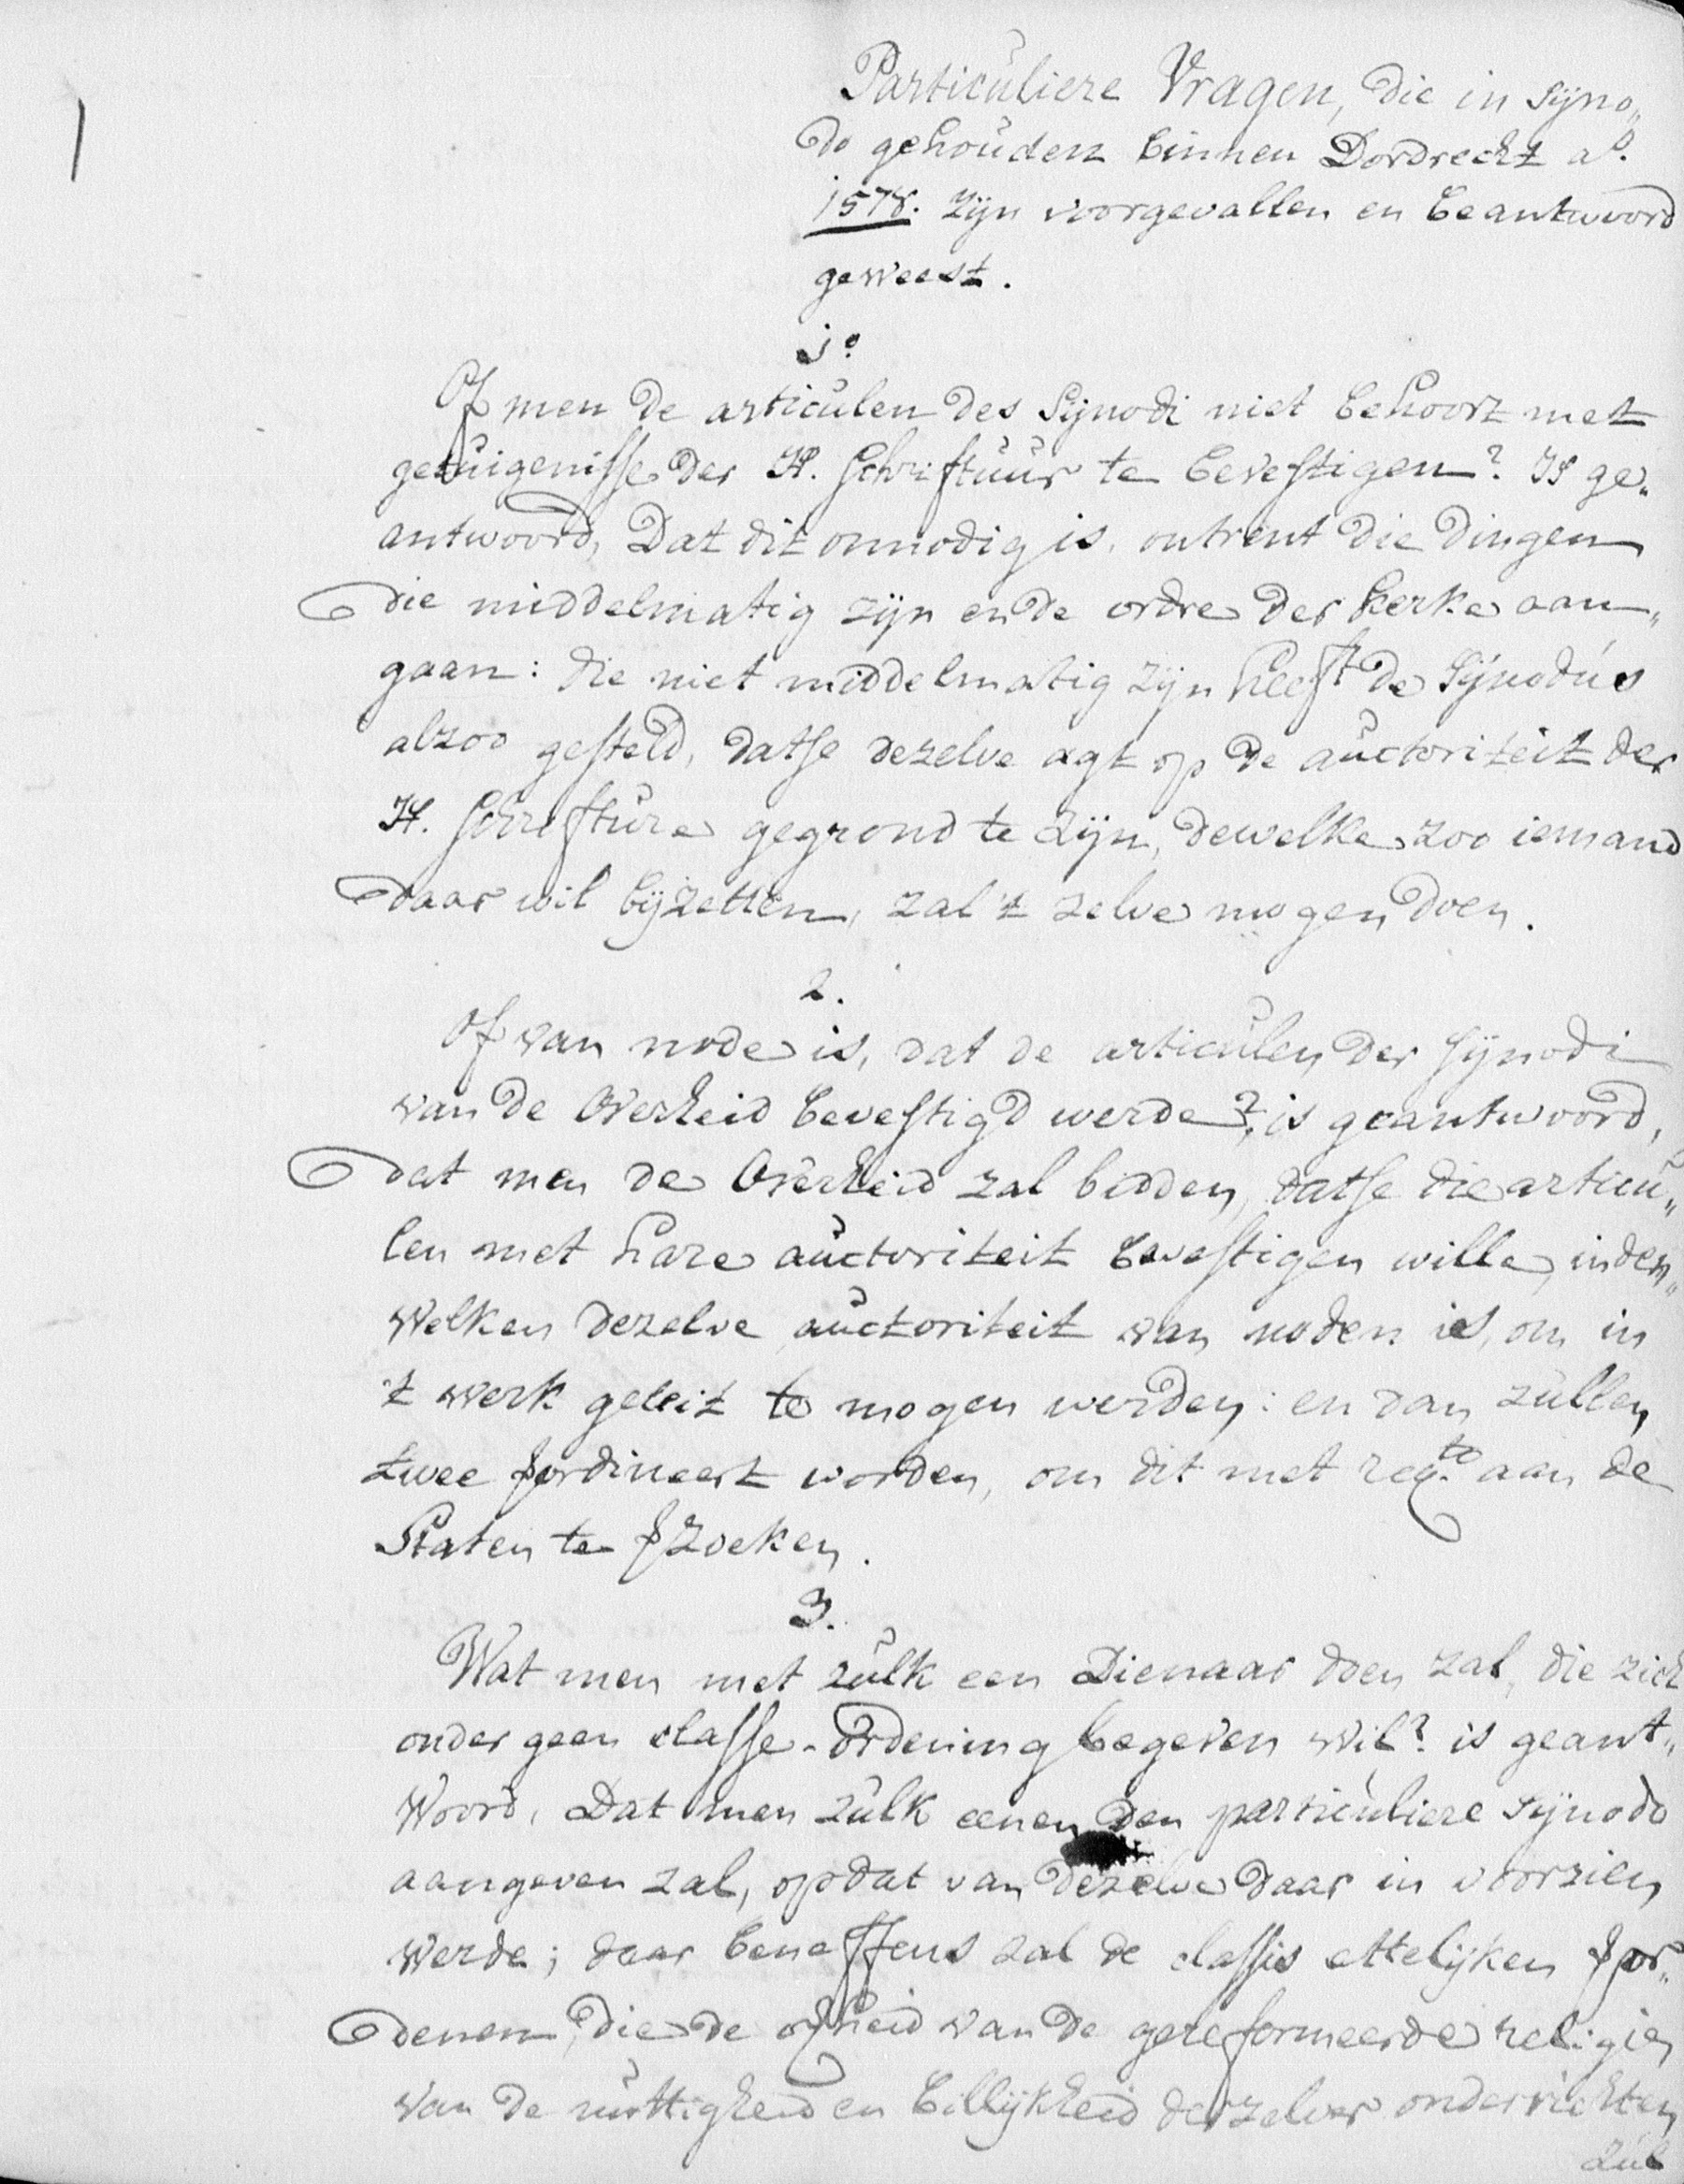 Particuliere Vragen, die in Syno„
do gehouden binnen Dordrecht aº.
1578. zijn voorgevallen en beantwoord
geweest.
1º
Of men de articulen des Synodi niet behoort met
getuigenisse der H. Schriftuur te bevestigen? Is ge„
antwoord, Dat dit onnodig is, ontrent die dingen
die middelmatig zijn ende ordre der kerke aan„
gaan: die niet middelmatig zijn heeft de Synodus
alzoo gesteld, datse dezelve agt op de auctoriteit der
H. Schrifture gegrond te zijn, dewelke zoo iemand
daar wil bijzetten, zal 't zelve mogen doen.
2.
Of van node is, dat de articulen der Synodi
van de Overheid bevestigd werde? is geantwoord,
dat men de Overheid zal bidden, datse die articu„
len met hare auctoriteit bevestigen wille, in den„
welken dezelve auctoriteit van noden is, om in
't werk geleit te mogen werden: en dan zullen
twee geordineert worden, om dit met reqto. aan de
Staten te verzoeken.
3.
Wat men met zulk een Dienaar doen zal, die zich
onder geen classe-ordening begeven wil? is geant„
woord, Dat men zulk eenen den particuliere Synodo
aangeven zal, opdat van dezelve daar in voorzien
werde; daar beneffens zal de classis ettelijken veror„
denen, die de vrijheid van de gereformeerde religien
van de nuttigheid en billijkheid derzelver onderrichten
zul